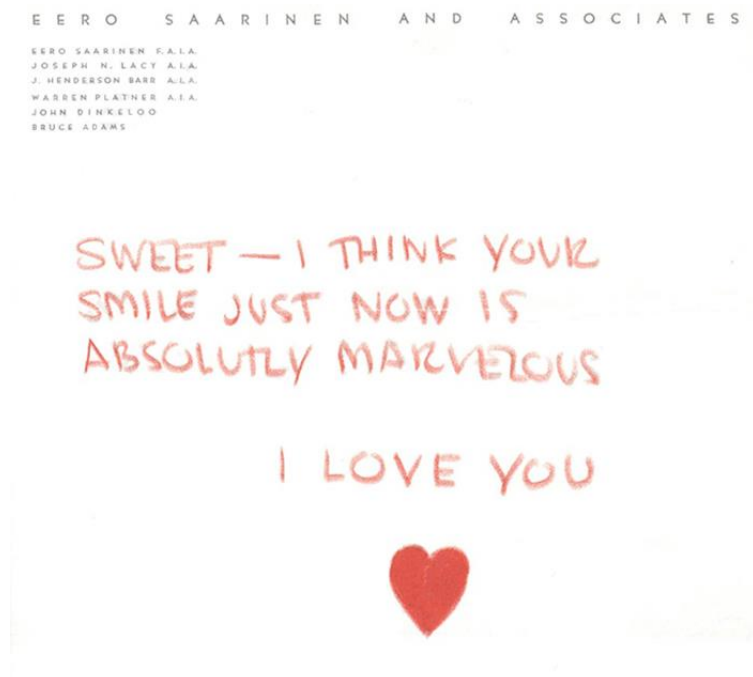 EERO SAARINEN AND ASSOCIATES
EERO SAARINEN F.A.I.A.
JOSEPH N. LACY A.I.A.
J. HENDERSON BARR A.I.A.
WARREN PLATNER A.I.A.
JOHN DINKELOO
BRUCE ADAMS
SWEET — I THINK YOUR
SMILE JUST NOW IS
ABSOLUTLY MARVELOUS
I LOVE YOU